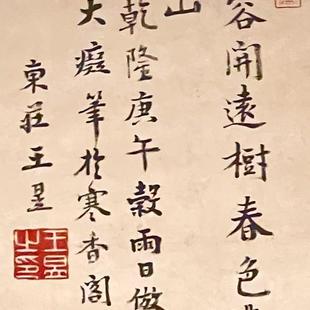 谷開遠樹春色
山
乾隆庚午穀雨日倣
大癡筆於寒香閣
東莊王昱
王昱之印